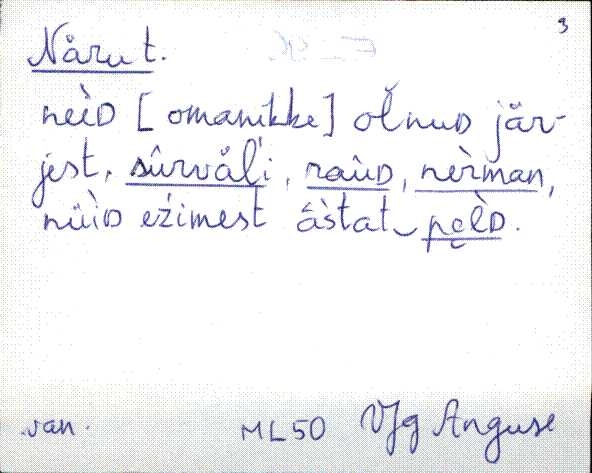 3
Nåru t.
neìD [omanikke] olnuD jär-
jest, sûrvåĺi, raùD, nèrman,
nüìD eźimest ástat pe̮lD.
van. ML50 Vjg Anguse